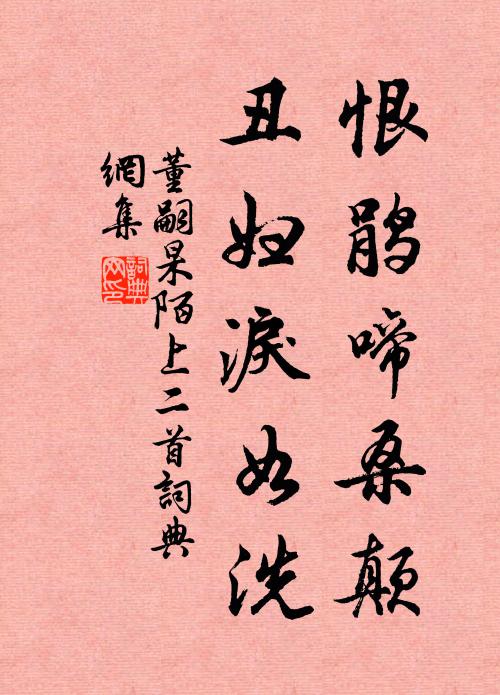 恨鹃啼桑颠
丑妇淚如洗
董嗣杲陌上二首詞典
網集
詞典網印